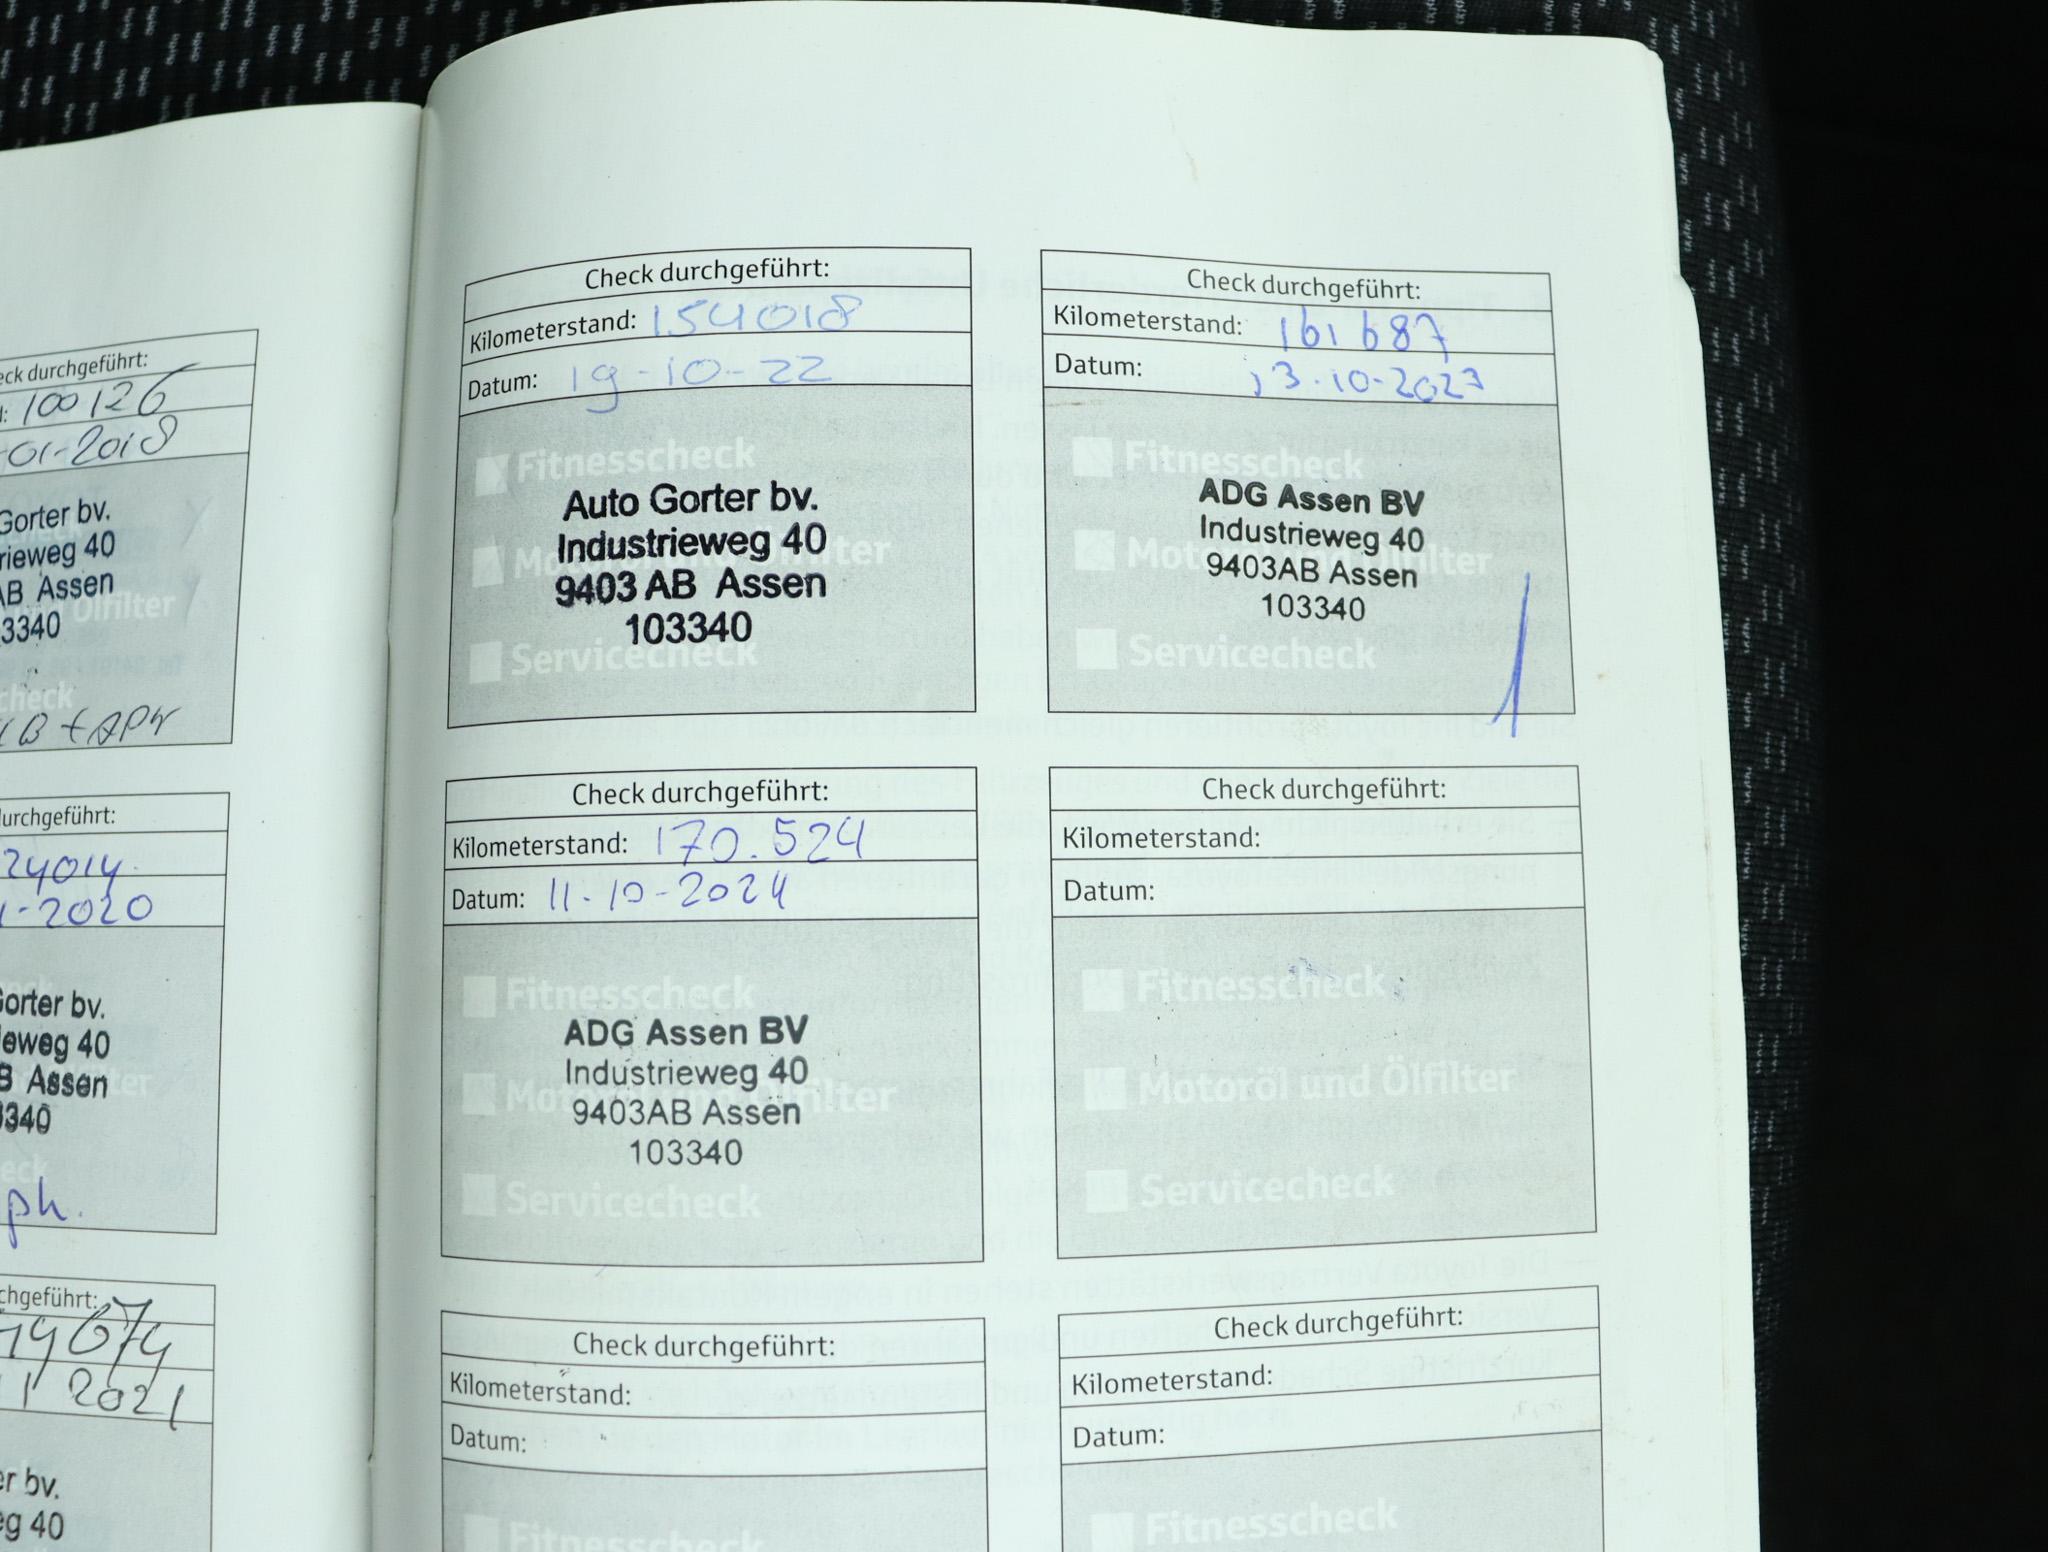 eck durchgeführt:
100126
-01-2018
Gorter bv.
rieweg 40
AB Assen
Ölfilter
3340
check
B + APK
durchgeführt:
24014.
1-2020
Gorter bv.
ieweg 40
B Assen
lter
3340
eck
ph.
chgeführt:
2021
er bv.
eg 40
Check durchgeführt:
Kilometerstand: 154018
Datum: 19-10-22
Fitnesscheck
Auto Gorter bv.
Industrieweg 40
Motoröl und Ölfilter
9403 AB Assen
103340
Servicecheck
Check durchgeführt:
Kilometerstand: 161687
Datum: 13-10-2023
Fitnesscheck
ADG Assen BV
Industrieweg 40
Motoröl und Ölfilter
9403AB Assen
103340
Servicecheck
Check durchgeführt:
Kilometerstand: 170.524
Datum: 11-10-2024
Fitnesscheck
ADG Assen BV
Industrieweg 40
Motoröl und Ölfilter
9403AB Assen
103340
Servicecheck
Check durchgeführt:
Kilometerstand:
Datum:
Fitnesscheck
Motoröl und Ölfilter
Servicecheck
Check durchgeführt:
Kilometerstand:
Datum:
Fitnesscheck
Check durchgeführt:
Kilometerstand:
Datum:
Fitnesscheck